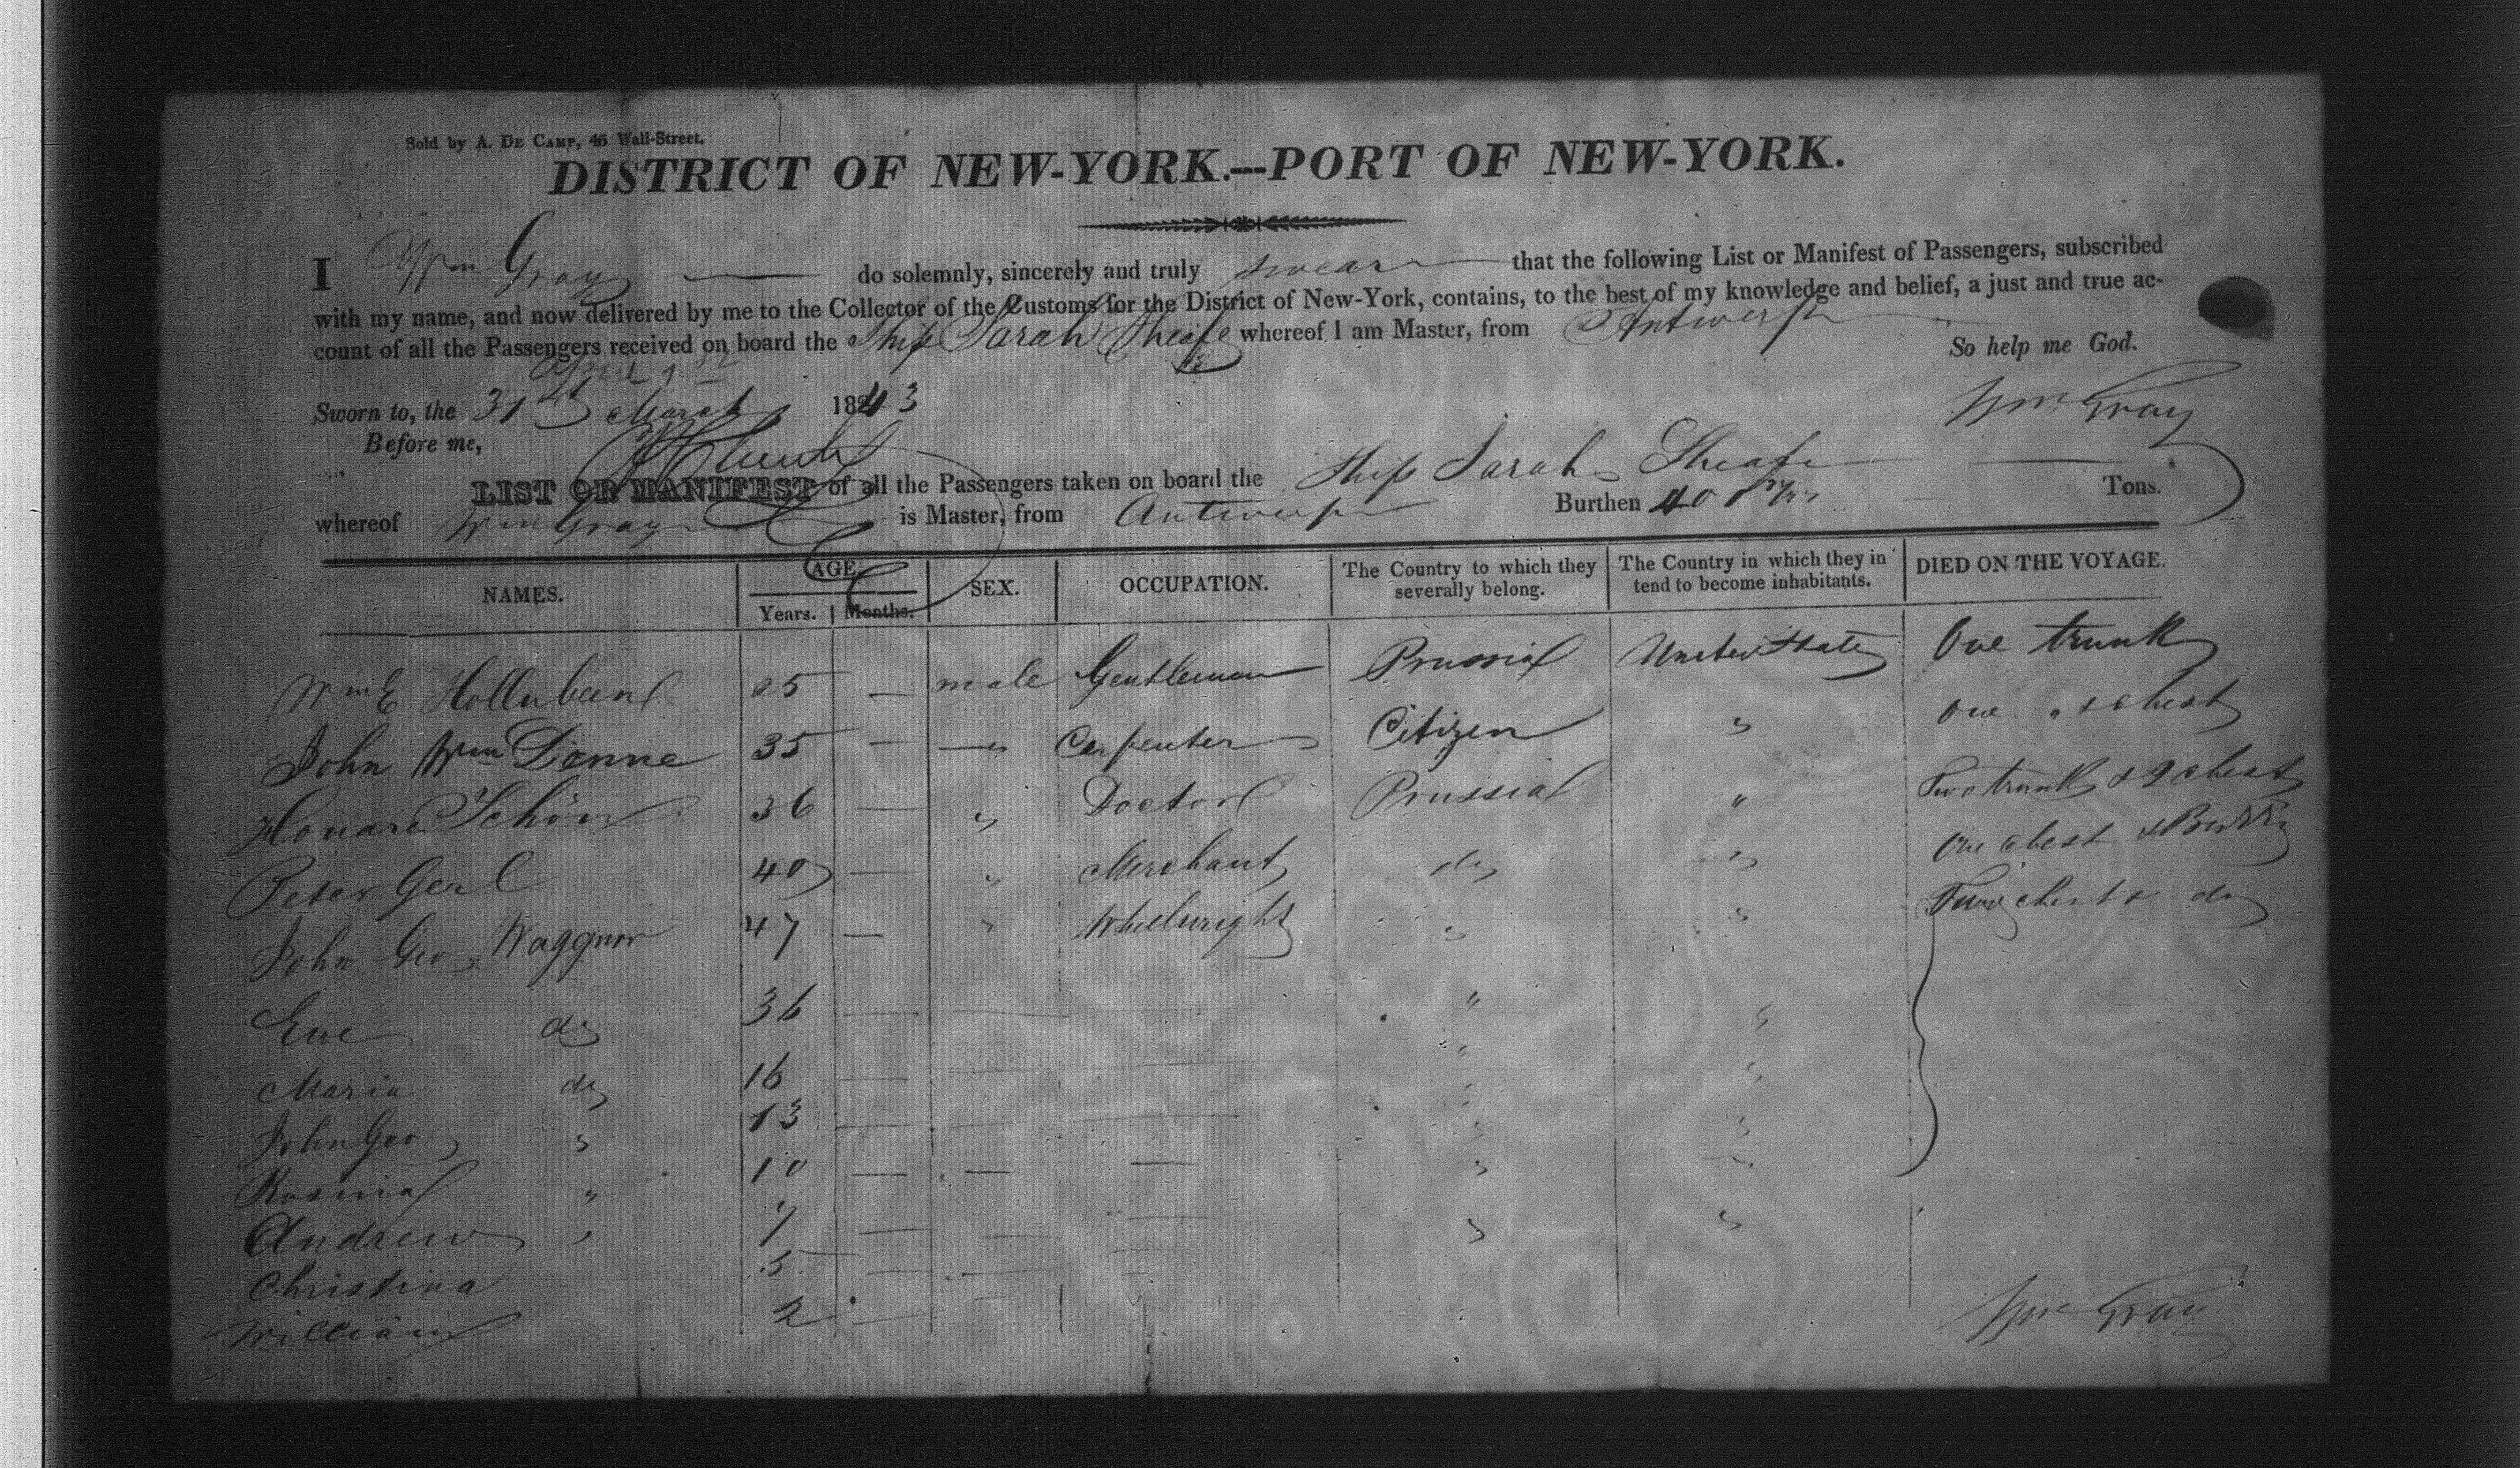 Sold by A. De Camp, 45 Wall-Street.
DISTRICT OF NEW-YORK.---PORT OF NEW-YORK.
I Wm Gray do solemnly, sincerely and truly swear that the following List or Manifest of Passengers, subscribed
with my name, and now delivered by me to the Collector of the Customs for the District of New-York, contains, to the best of my knowledge and belief, a just and true ac-
count of all the Passengers received on board the Ship Sarah Sheafe whereof I am Master, from Antwerp
So help me God.
April 1st
Sworn to, the 31st March 1843
Wm Gray
Before me,
LIST OR MANIFEST of all the Passengers taken on board the Ship Sarah Sheafe
whereof Wm Gray is Master, from Antwerp Burthen 400 Tons.
NAMES. AGE. Years. Months. SEX. OCCUPATION. The Country to which they severally belong. The Country in which they in tend to become inhabitants. DIED ON THE VOYAGE.
Wm E 25 — male Gentleman Prussia United States One trunk
John Wm Denne 35 — " Carpenter Citizen " one " & chest
Schön 36 — " Doctor Prussia " Two trunk & 2 chest
Peter Gerl 40 — " Merchant do " One chest &
John Geo Waggner 47 — " Wheelwright " " chest & do
Eve do 36 — " "
Maria do 16 — " "
John Geo " 13 — " "
Rosina " 10 — — — " "
Andrew " 7 — " "
Christina 5 —
William 2 —
Wm Gray